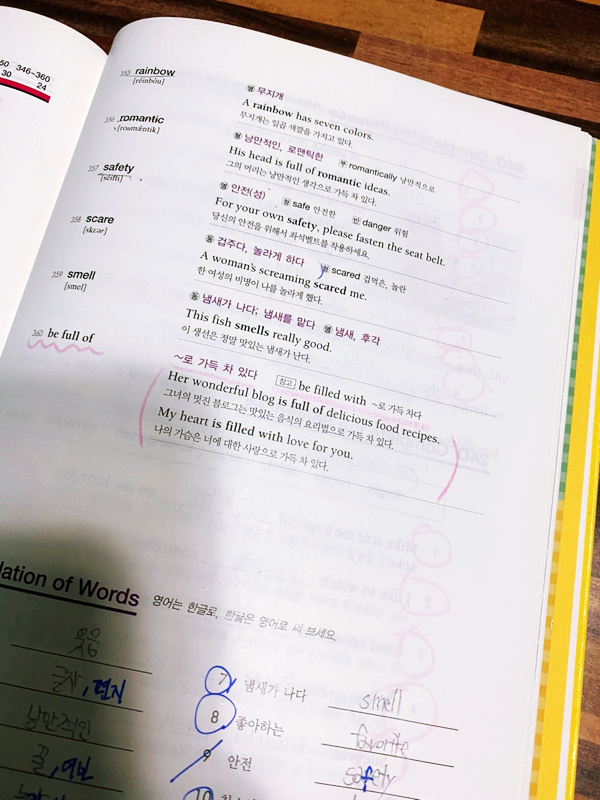 50 346~360
30 24
355 rainbow
[réinbòu]
명 무지개
A rainbow has seven colors.
무지개는 일곱 색깔을 가지고 있다.
356 romantic
[roumǽntik]
형 낭만적인, 로맨틱한 부 romantically 낭만적으로
His head is full of romantic ideas.
그의 머리는 낭만적인 생각으로 가득 차 있다.
357 safety
[séifti]
명 안전(성) 형 safe 안전한 반 danger 위험
For your own safety, please fasten the seat belt.
당신의 안전을 위해서 좌석벨트를 착용하세요.
358 scare
[skɛər]
동 겁주다, 놀라게 하다 형 scared 겁먹은, 놀란
A woman's screaming scared me.
한 여성의 비명이 나를 놀라게 했다.
359 smell
[smel]
동 냄새가 나다; 냄새를 맡다 명 냄새, 후각
This fish smells really good.
이 생선은 정말 맛있는 냄새가 난다.
360 be full of
~로 가득 차 있다 참고 be filled with ~로 가득 차다
Her wonderful blog is full of delicious food recipes.
그녀의 멋진 블로그는 맛있는 음식의 요리법으로 가득 차 있다.
My heart is filled with love for you.
나의 가슴은 너에 대한 사랑으로 가득 차 있다.
lation of Words 영어는 한글로, 한글은 영어로 써 보세요.
글자, 편지
낭만적인
7 냄새가 나다 smell
8 좋아하는 favorite
9 안전 safety
10